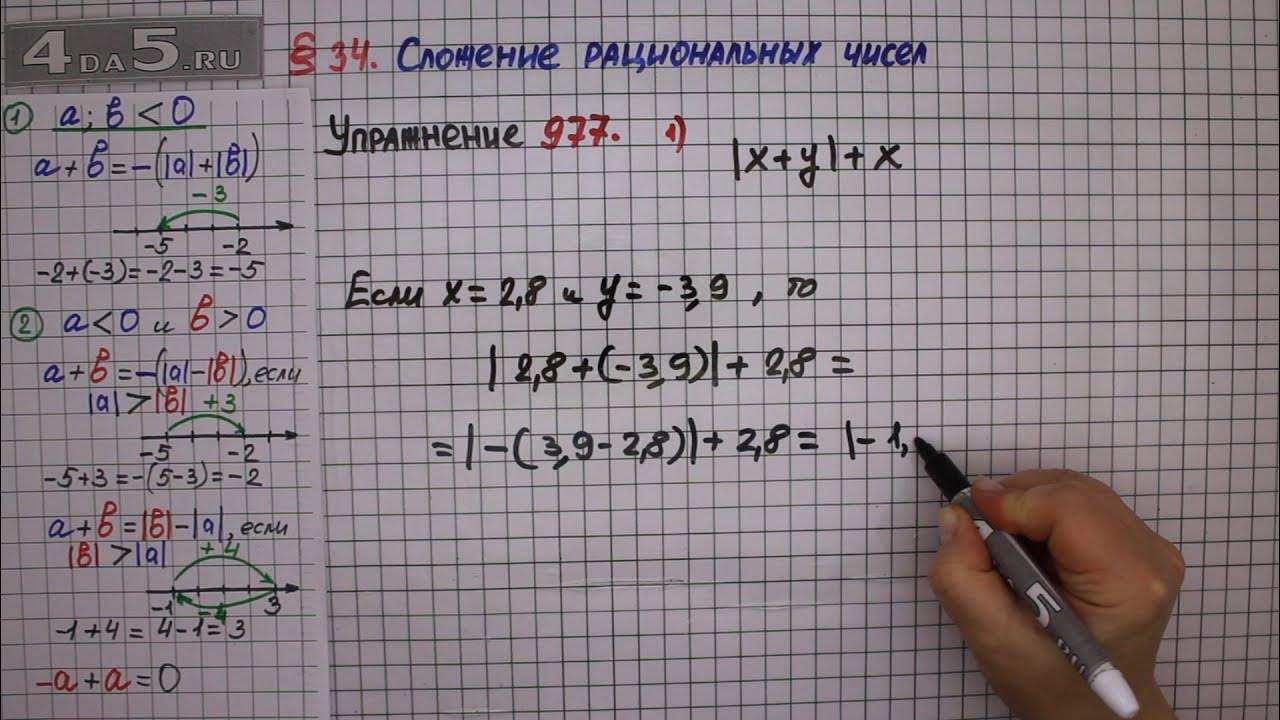 4DA5.RU
§ 34. Сложение рациональных чисел
① a; b < 0
a + b = -(|a|+|b|)
-3
-5 -2
-2+(-3)=-2-3=-5
② a<0 и b>0
a+b=-(|a|-|b|), если
|a|>|b| +3
-5 -2
-5+3=-(5-3)=-2
a+b=|b|-|a|, если
|b|>|a| +4
-1 -4 3
-1+4=4-1=3
-a+a=0
Упражнение 977. 1)
|x+y|+x
Если x=2,8 и y=-3,9, то
|2,8+(-3,9)|+2,8=
=|-(3,9-2,8)|+2,8= |-1,
5